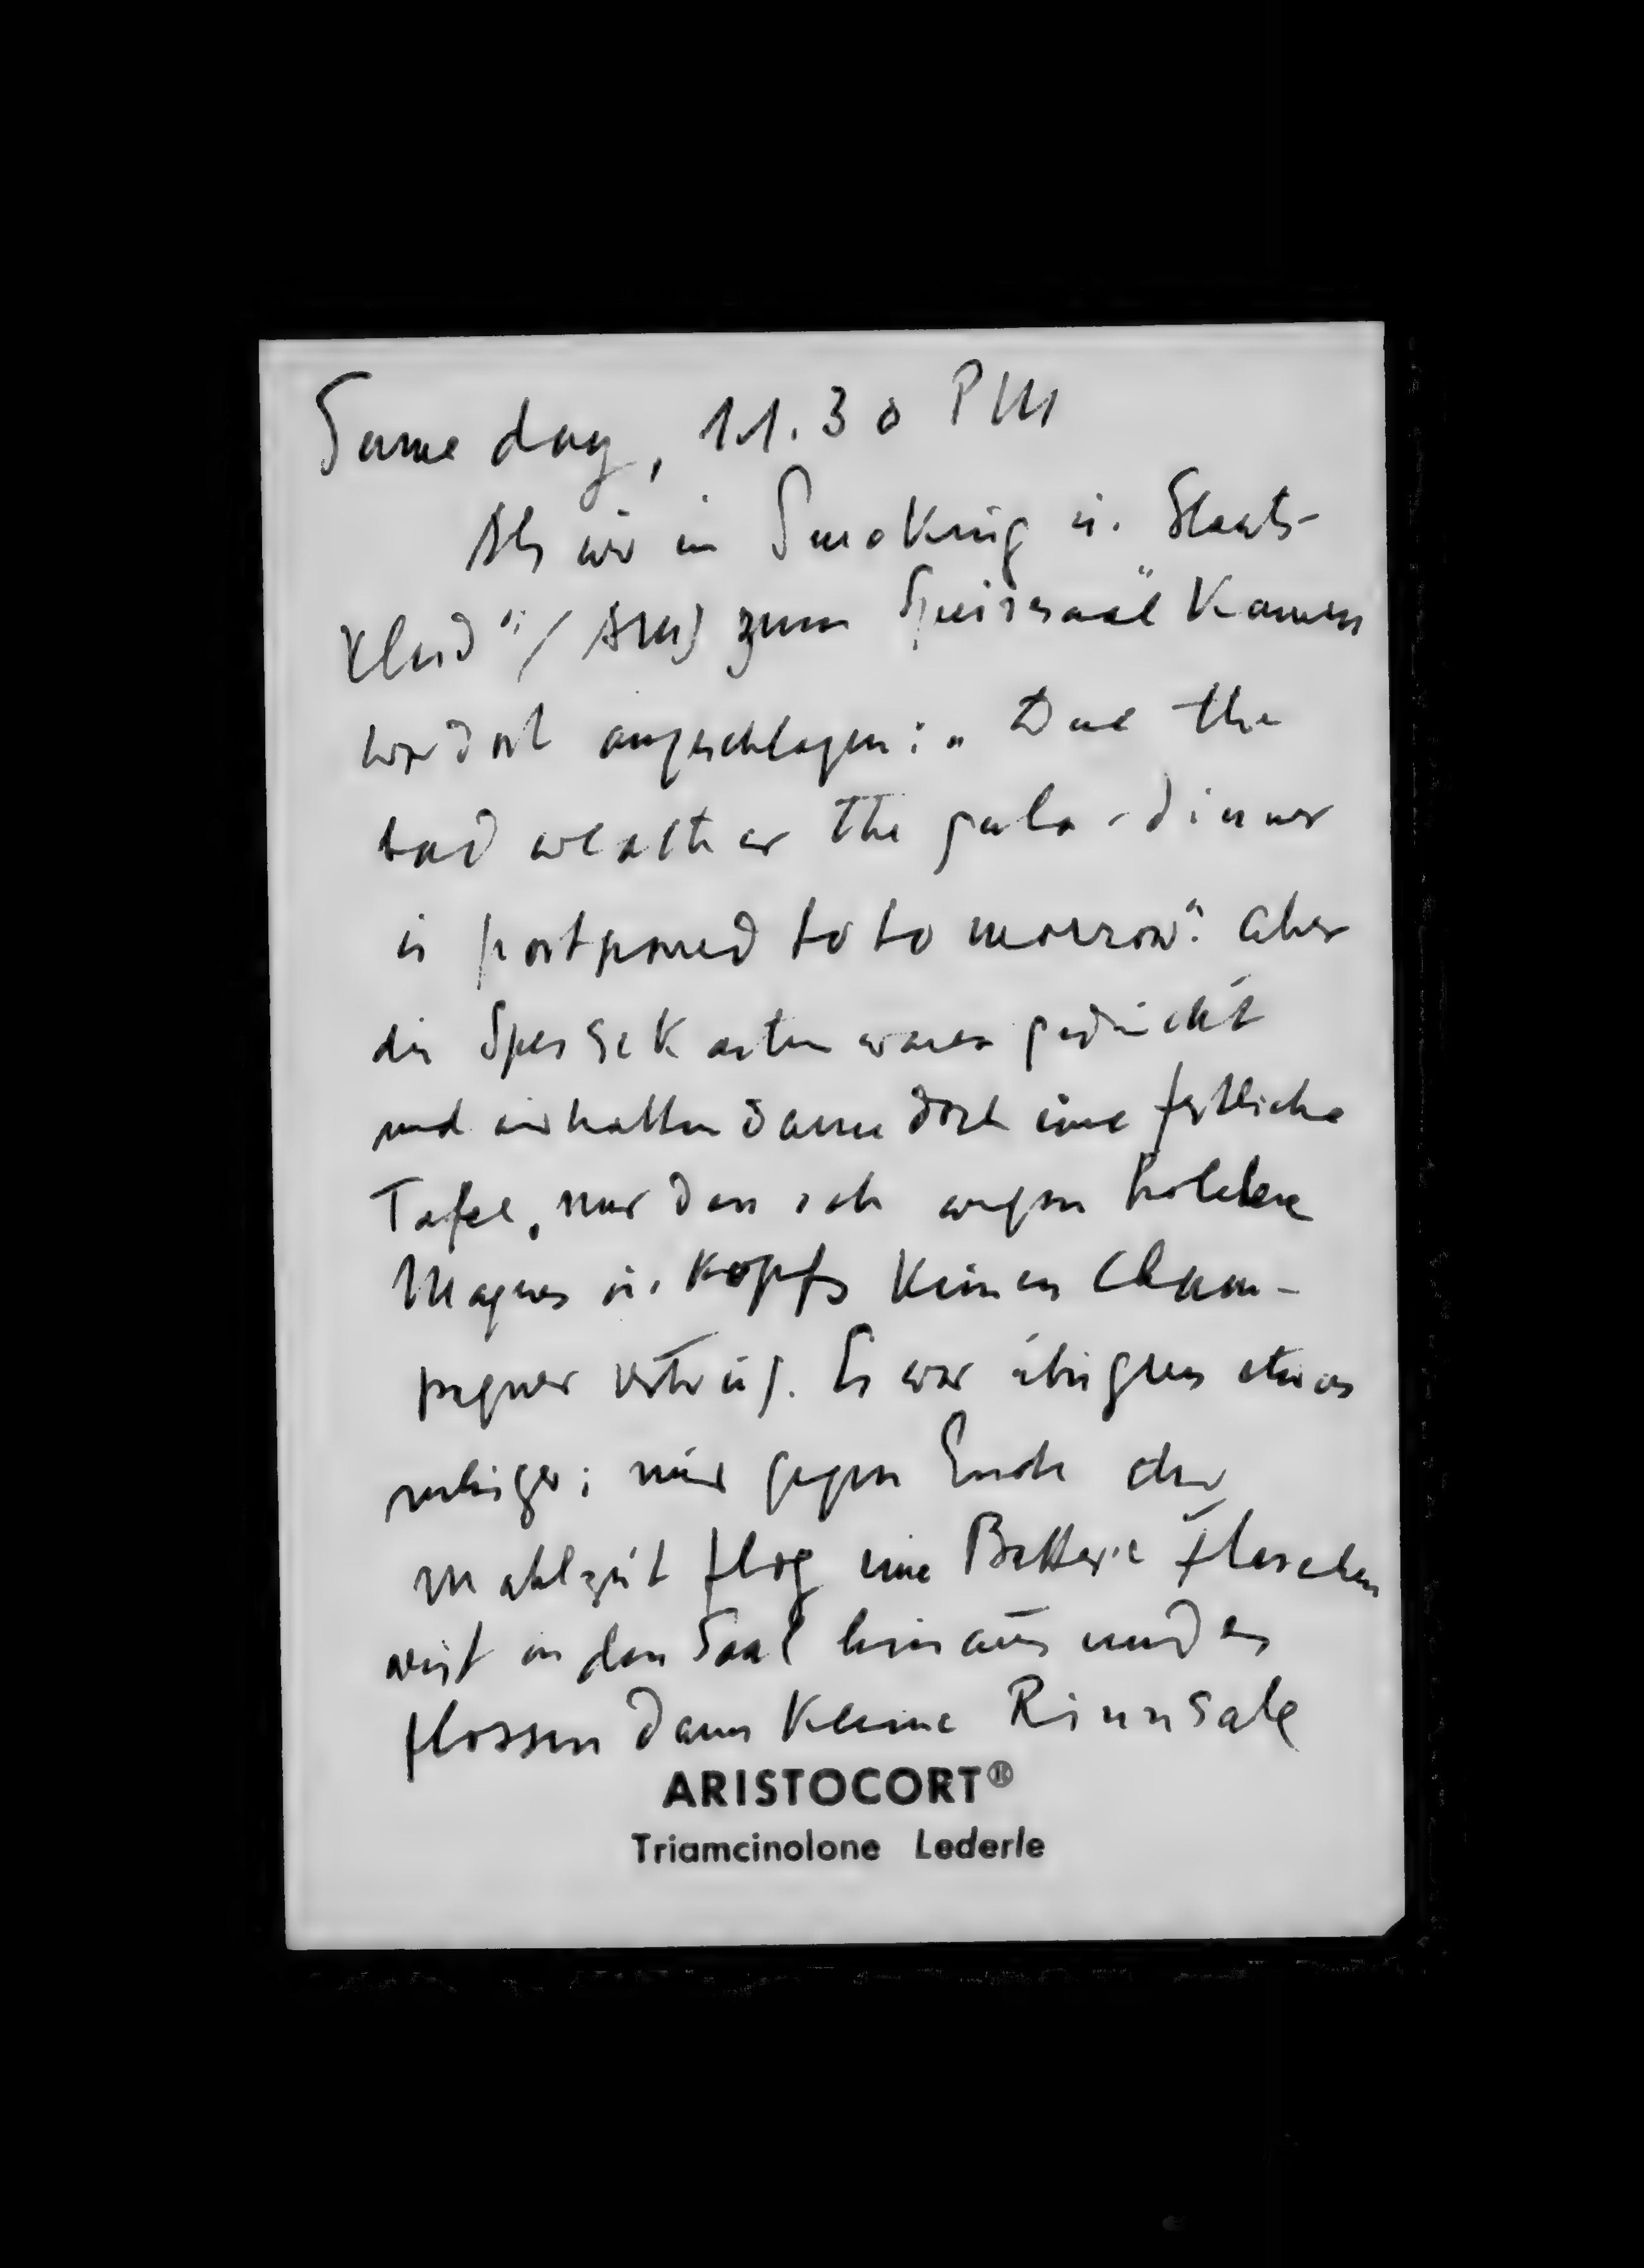 Same day, 11.30 PM
Als wir in Smoking u. Staats-
kleid zum Speisesaal kamen
war dort angeschlagen: „Due the
bad weather the gala-dinner
is postponed to to morrow". Aber
die Speisekarten waren gedruckt
und wir hatten dann doch eine festliche
Tafel, nur dass ich wegen
Magens u. Kopfs keinen Cham-
pagner vertrug. Es war übrigens etwas
ruhiger; nur gegen Ende der
Mahlzeit flog eine Batterie Flaschen
weit in den Saal hinaus und es
flossen dann kleine Rinnsale
ARISTOCORT®
Triamcinolone Lederle